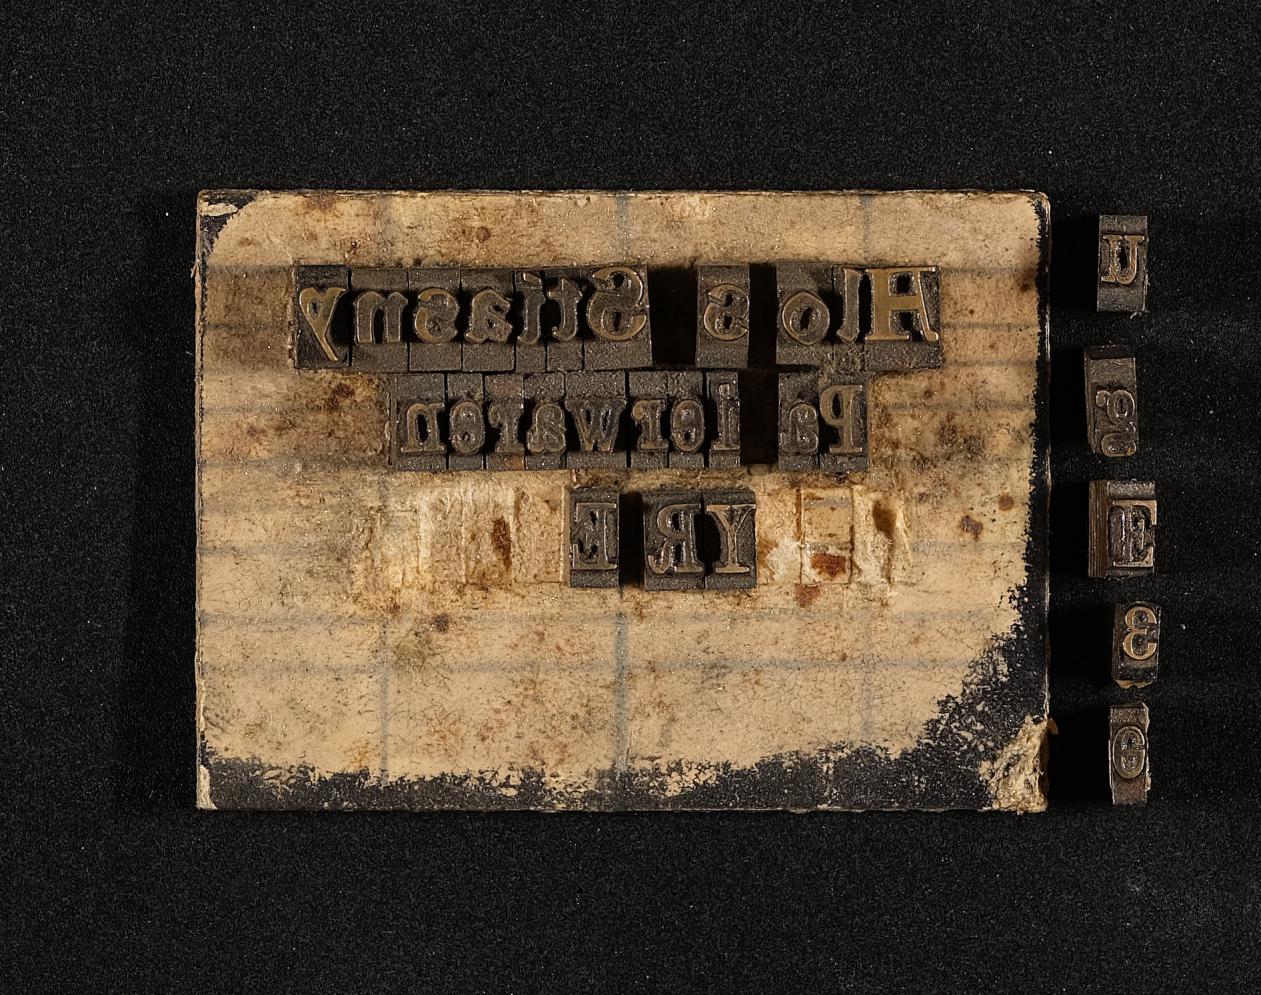 Alo s Stiasny
pa ierwaren
YR E
U
E